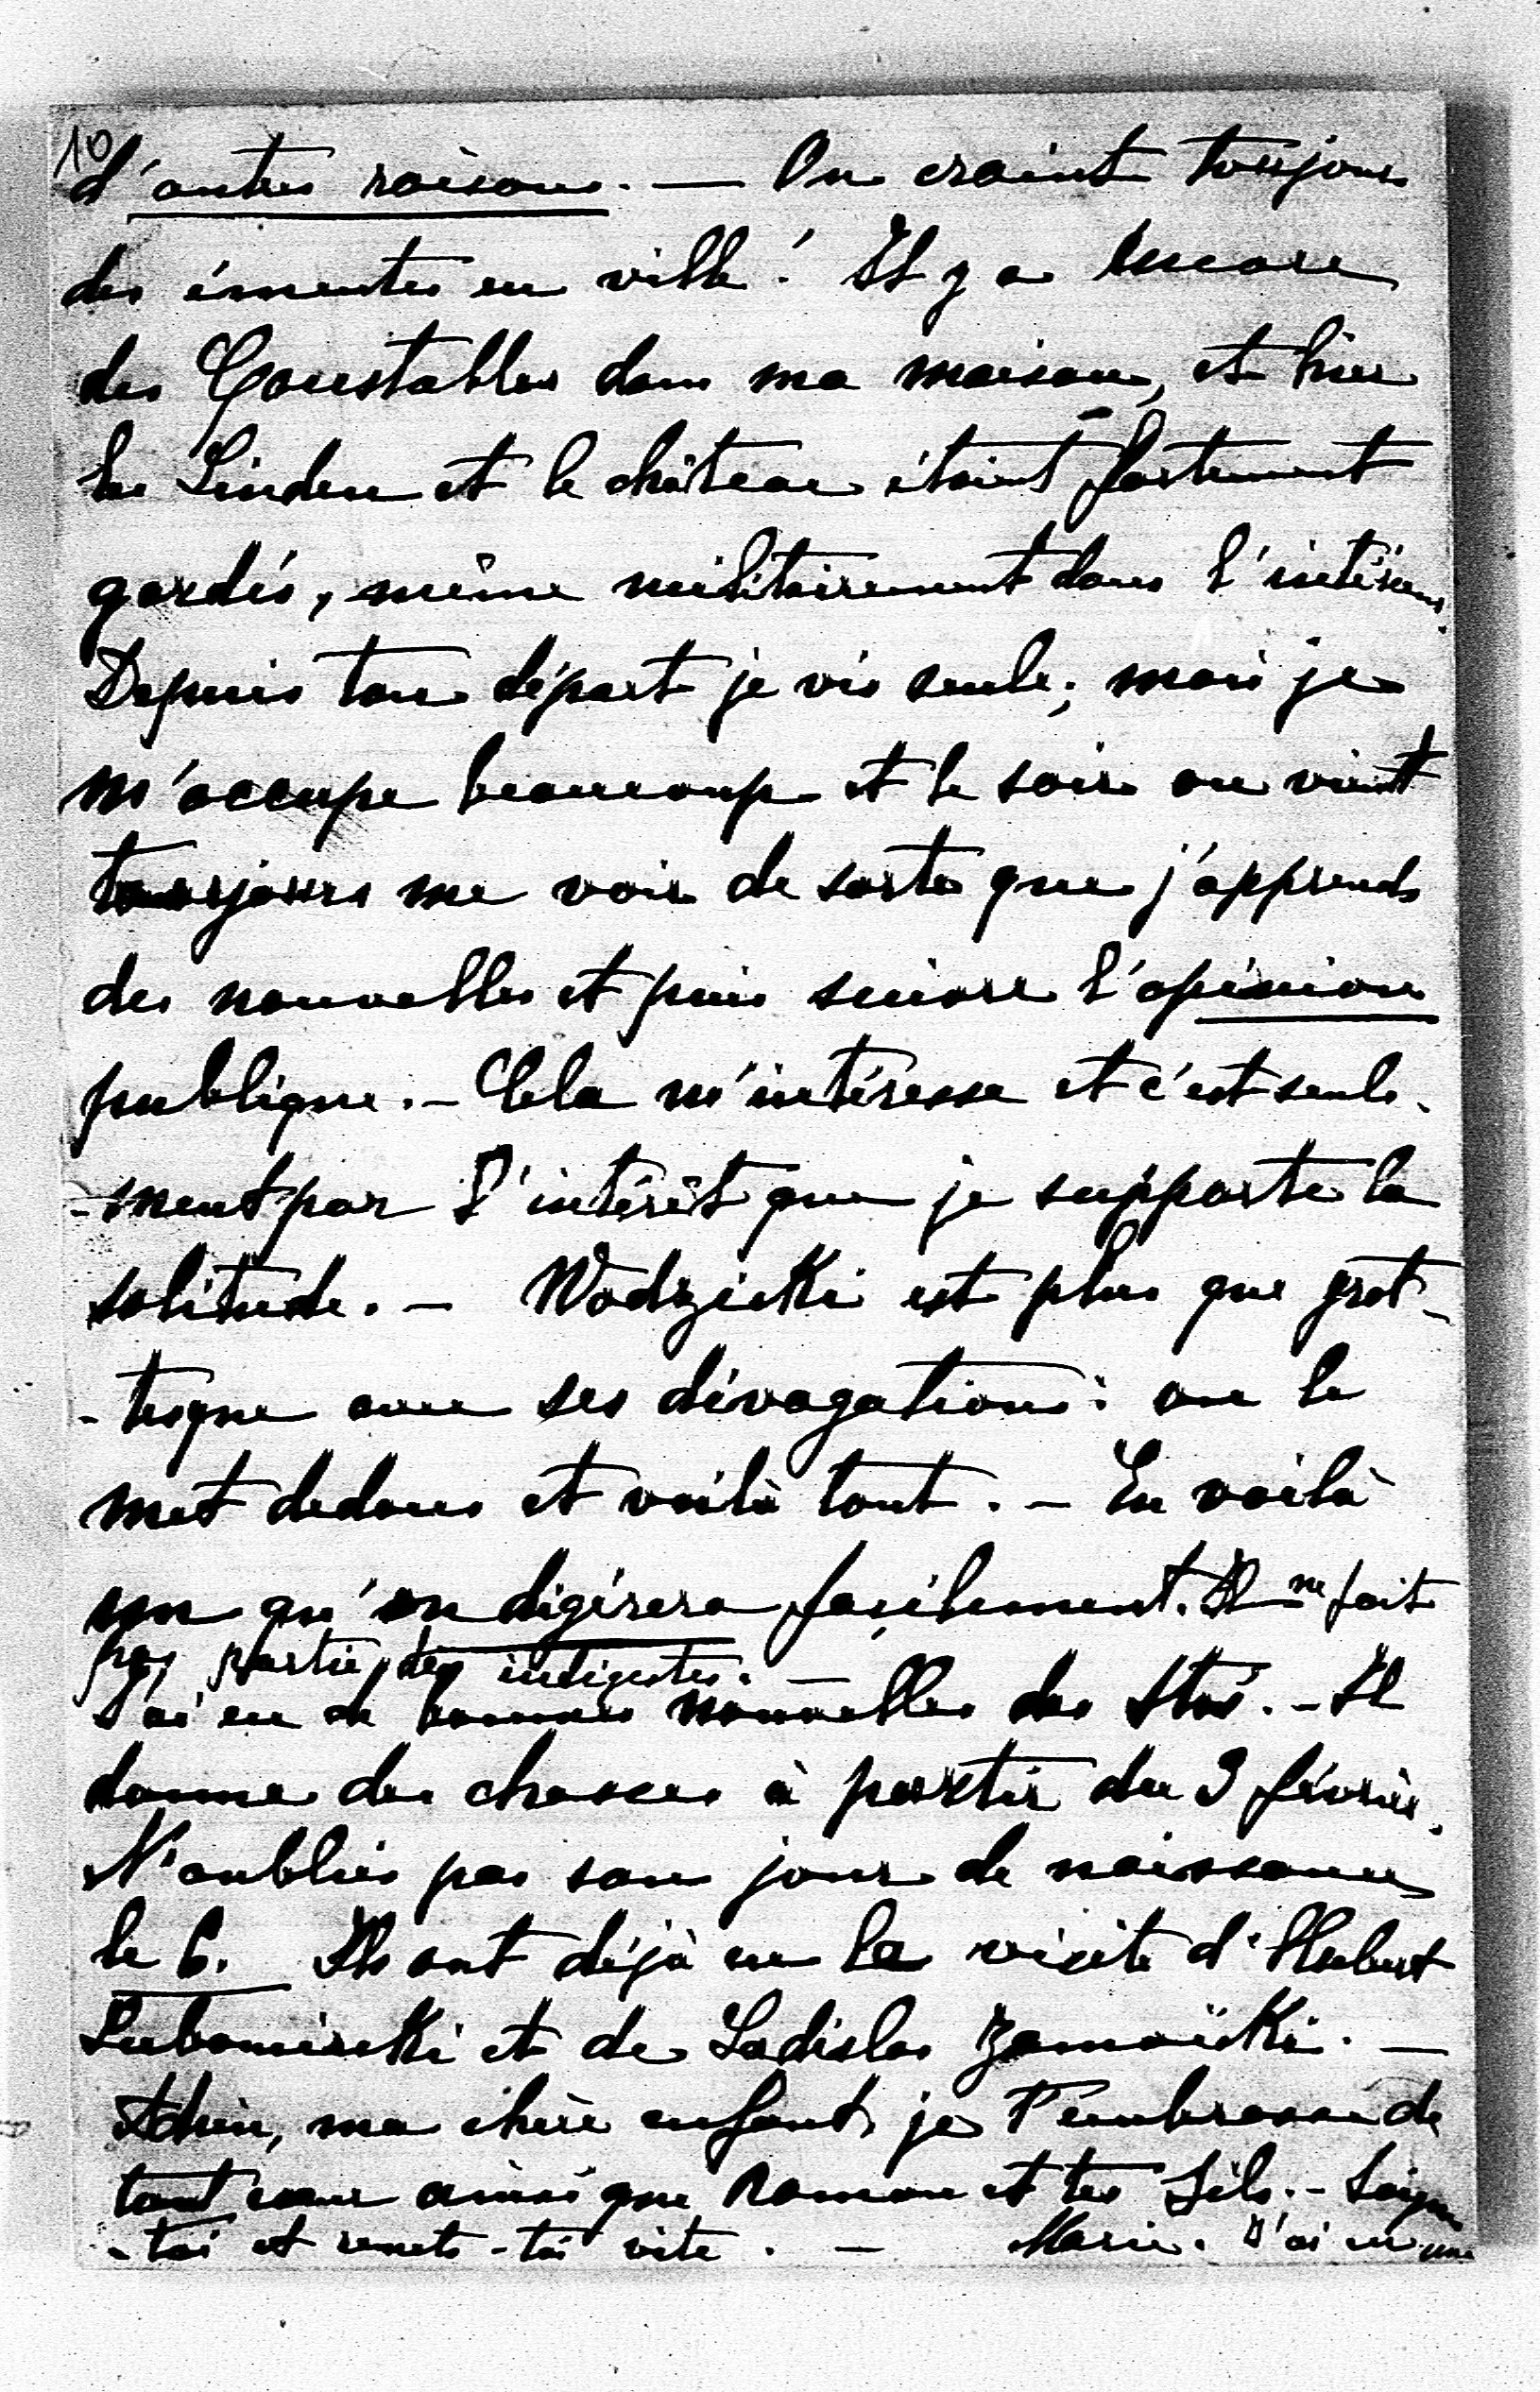 10
d'autres raisons. — On craint toujours
des émeutes en ville! Il y a encore
des Constables dans ma maison, et hier
les Linden et le château étaient fortement
gardés, même militairement dans l'intérieur.
Depuis ton départ je vis seule; mais je
m'occupe beaucoup et le soir on vient
toujours me voir de sorte que j'apprends
des nouvelles et puis suivre l'opinion
publique. — Cela m'intéresse et c'est seule-
-ment par l'intérêt que je supporte la
solitude. — Wodzicki est plus que grot-
-tesque avec ses divagations: on le
met dedans et voilà tout. — En voilà
un qu'on digérera facilement. Il ne fait
pas partie des indigestes. —
J'ai eu de bonnes nouvelles des Stas. — Il
donne des chasses à partir du 3 février.
N'oublies pas son jour de naissance
le 6. Ils ont déjà eu la visite d'Hubert
Lubomirski et de Ladislas Zamoïski. —
Adieu, ma chère enfant, je t'embrasse de
tout cœur ainsi que Roman et tes fils. — Soigne
-toi et remets-toi vite. — Marie. J'ai eu une